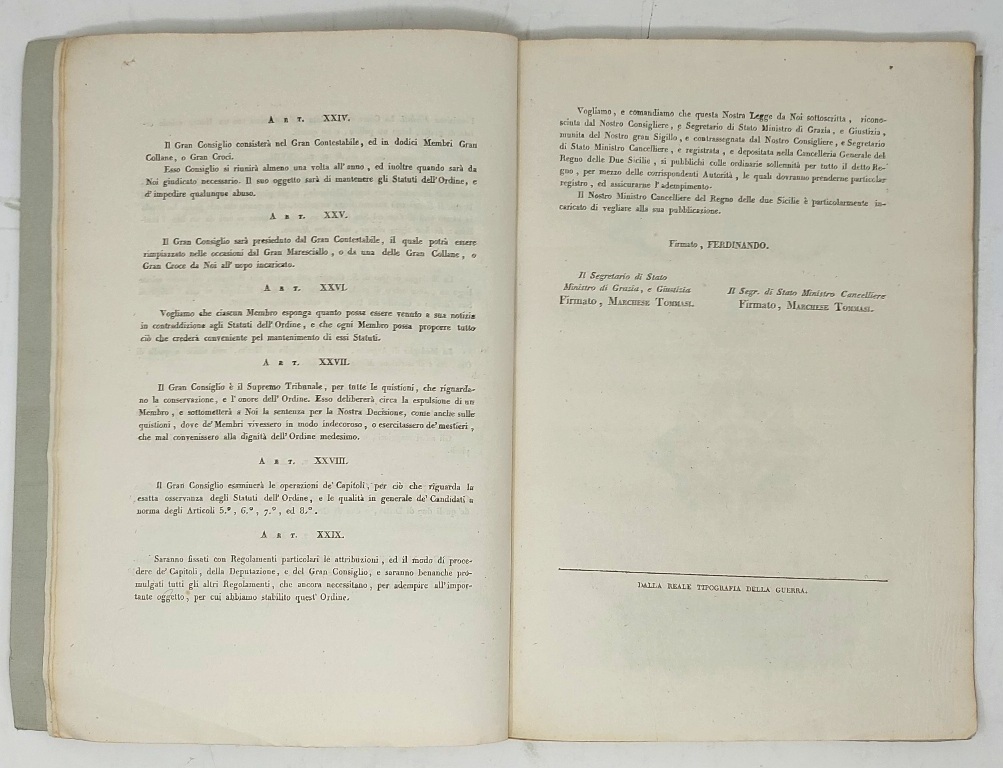 ART. XXIV.
Il Gran Consiglio consisterà nel Gran Contestabile, ed in dodici Membri Gran
Collane, o Gran Croci.
Esso Consiglio si riunirà almeno una volta all'anno, ed inoltre quando sarà da
Noi giudicato necessario. Il suo oggetto sarà di mantenere gli Statuti dell'Ordine, e
d'impedire qualunque abuso.
ART. XXV.
Il Gran Consiglio sarà presieduto dal Gran Contestabile, il quale potrà essere
rimpiazzato nelle occasioni dal Gran Maresciallo, o da una delle Gran Collane, o
Gran Croce da Noi all'uopo incaricato.
ART. XXVI.
Vogliamo che ciascun Membro esponga quanto possa essere venuto a sua notizia
in contraddizione agli Statuti dell'Ordine, e che ogni Membro possa proporre tutto
ciò che crederà conveniente pel mantenimento di essi Statuti.
ART. XXVII.
Il Gran Consiglio è il Supremo Tribunale, per tutte le quistioni, che riguarda-
no la conservazione, e l'onore dell'Ordine. Esso delibererà circa la espulsione di un
Membro, e sottometterà a Noi la sentenza per la Nostra Decisione, come anche sulle
quistioni, dove de' Membri vivessero in modo indecoroso, o esercitassero de' mestieri,
che mal convenissero alla dignità dell'Ordine medesimo.
ART. XXVIII.
Il Gran Consiglio esaminerà le operazioni de' Capitoli, per ciò che riguarda la
esatta osservanza degli Statuti dell'Ordine, e le qualità in generale de' Candidati a
norma degli Articoli 5.°, 6.°, 7.°, ed 8.°.
ART. XXIX.
Saranno fissati con Regolamenti particolari le attribuzioni, ed il modo di proce-
dere de' Capitoli, della Deputazione, e del Gran Consiglio, e saranno benanche pro-
mulgati tutti gli altri Regolamenti, che ancora necessitano, per adempire all'impor-
tante oggetto, per cui abbiamo stabilito quest'Ordine.
Vogliamo, e comandiamo che questa Nostra Legge da Noi sottoscritta, ricono-
sciuta dal Nostro Consigliere, e Segretario di Stato Ministro di Grazia, e Giustizia,
munita del Nostro gran Sigillo, e contrassegnata dal Nostro Consigliere, e Segretario
di Stato Ministro Cancelliere, e registrata, e depositata nella Cancelleria Generale del
Regno delle Due Sicilie, si pubblichi colle ordinarie sollennità per tutto il detto Re-
gno, per mezzo delle corrispondenti Autorità, le quali dovranno prenderne particolar
registro, ed assicurarne l'adempimento.
Il Nostro Ministro Cancelliere del Regno delle due Sicilie è particolarmente in-
caricato di vegliare alla sua pubblicazione.
Firmato, FERDINANDO.
Il Segretario di Stato
Ministro di Grazia, e Giustizia
Firmato, MARCHESE TOMMASI.
Il Segr. di Stato Ministro Cancelliere
Firmato, MARCHESE TOMMASI.
DALLA REALE TIPOGRAFIA DELLA GUERRA.